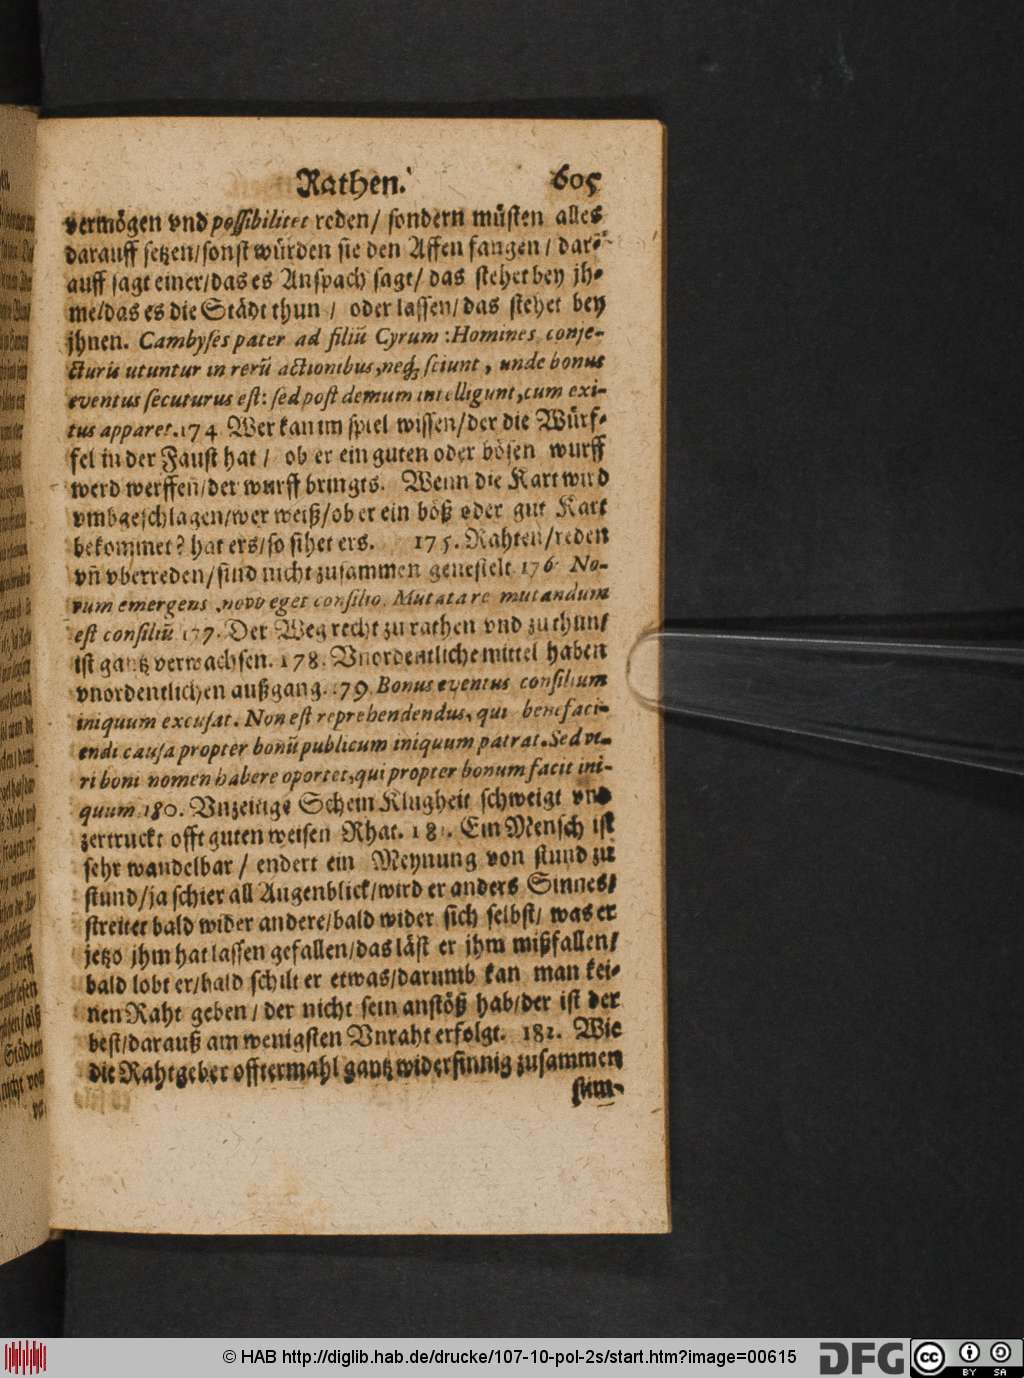 Rathen. 605
vermögen vnd possibilitet reden/ sondern müsten alles
darauff setzen/sonst würden sie den Affen fangen/ dar-
auff sagt einer/das es Anspach sagt/ das stehet bey jh-
me/das es die Städt thun / oder lassen/das stehet bey
jhnen. Cambyses pater ad filiū Cyrum: Homines conje-
cturis utuntur in rerū actionibus,neq; sciunt, unde bonus
eventus secuturus est: sed post demum intelligunt,cum exi-
tus apparet.174 Wer kan im spiel wissen/der die Würf-
fel in der Faust hat / ob er ein guten oder bösen wurff
werd werffen/der wurff bringts. Wenn die Kart wird
vmbgeschlagen/wer weiß/ob er ein böß oder gut Kart
bekommet? hat ers/so sihet ers. 175. Rahten/reden
vñ vberreden/sind nicht zusammen genestelt 176 No-
vum emergens novo eget consilio. Mutata re mutandum
est consiliū 177. Der Weg recht zu rathen vnd zu thun/
ist gantz verwachsen. 178. Vnordentliche mittel haben
vnordentlichen außgang. 179. Bonus eventus consilium
iniquum excusat. Non est reprehendendus, qui benefaci-
endi causa propter bonū publicum iniquum patrat. Sed vi-
ri boni nomen habere oportet,qui propter bonum facit ini-
quum 180. Vnzeitige Schein Klugheit schweigt vnd
zertruckt offt guten weisen Rhat. 181. Ein Mensch ist
sehr wandelbar / endert ein Meynung von stund zu
stund/ja schier all Augenblick/wird er anders Sinnes/
streitet bald wider andere/bald wider sich selbst/ was er
jetzo jhm hat lassen gefallen/das läst er jhm mißfallen/
bald lobt er/bald schilt er etwas/darumb kan man kei-
nen Raht geben / der nicht sein anstöß hab/der ist der
best/darauß am wenigsten Vnraht erfolgt. 182. Wie
die Rahtgeber offtermahl gantz widersinnig zusammen
stim-
© HAB http://diglib.hab.de/drucke/107-10-pol-2s/start.htm?image=00615
DFG
cc BY SA